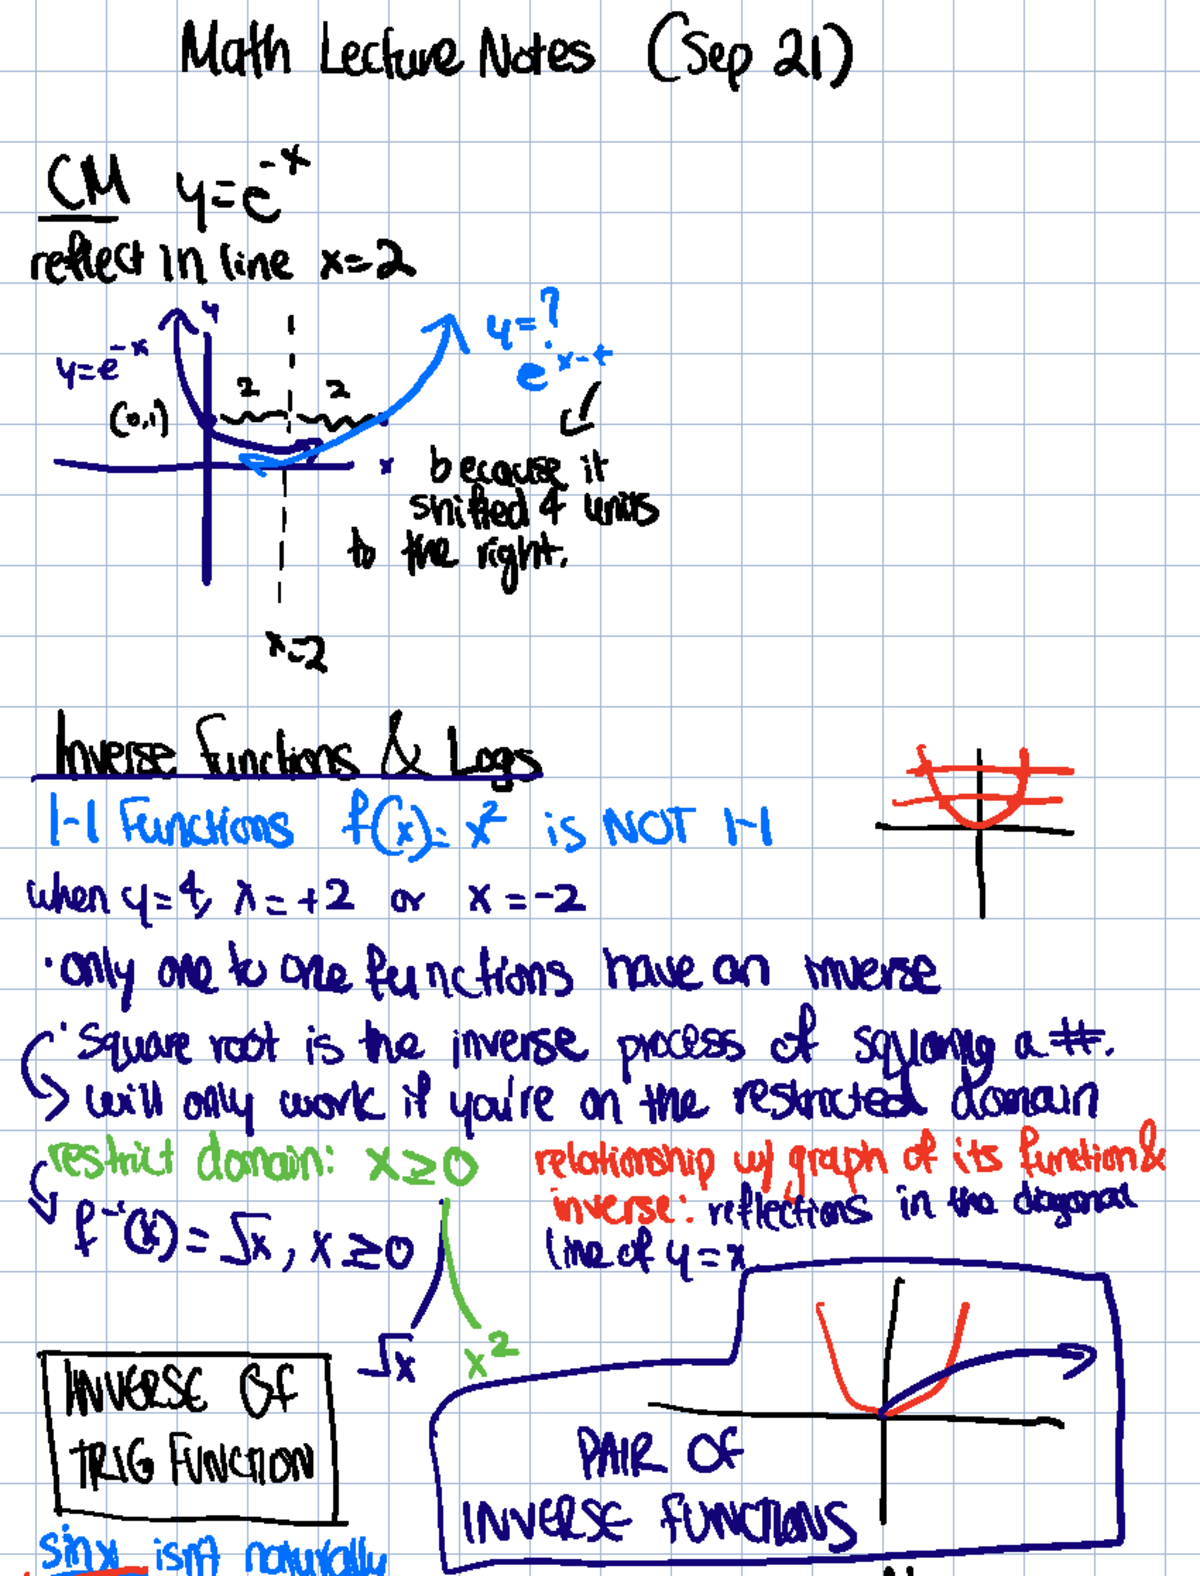 Math Lecture Notes (Sep 21)
CM y=e^-x
reflect in line x=2
y
y=e^-x
2 2
(0,1)
y=?
e^x-4
x
because it
shifted 4 units
to the right.
x=2
Inverse Functions & Logs
1-1 Functions f(x)= x² is NOT 1-1
when y=4, x=+2 or x=-2
·only one to one functions have an inverse
·Square root is the inverse process of squaring a #.
→ will only work if you're on the restricted domain
restrict domain: x≥0
f⁻¹(x)=√x, x≥0
√x x²
relationship w/ graph of its function &
inverse: reflections in the diagonal
line of y=x
PAIR OF
INVERSE FUNCTIONS
INVERSE OF
TRIG FUNCTION
sinx isn't naturally